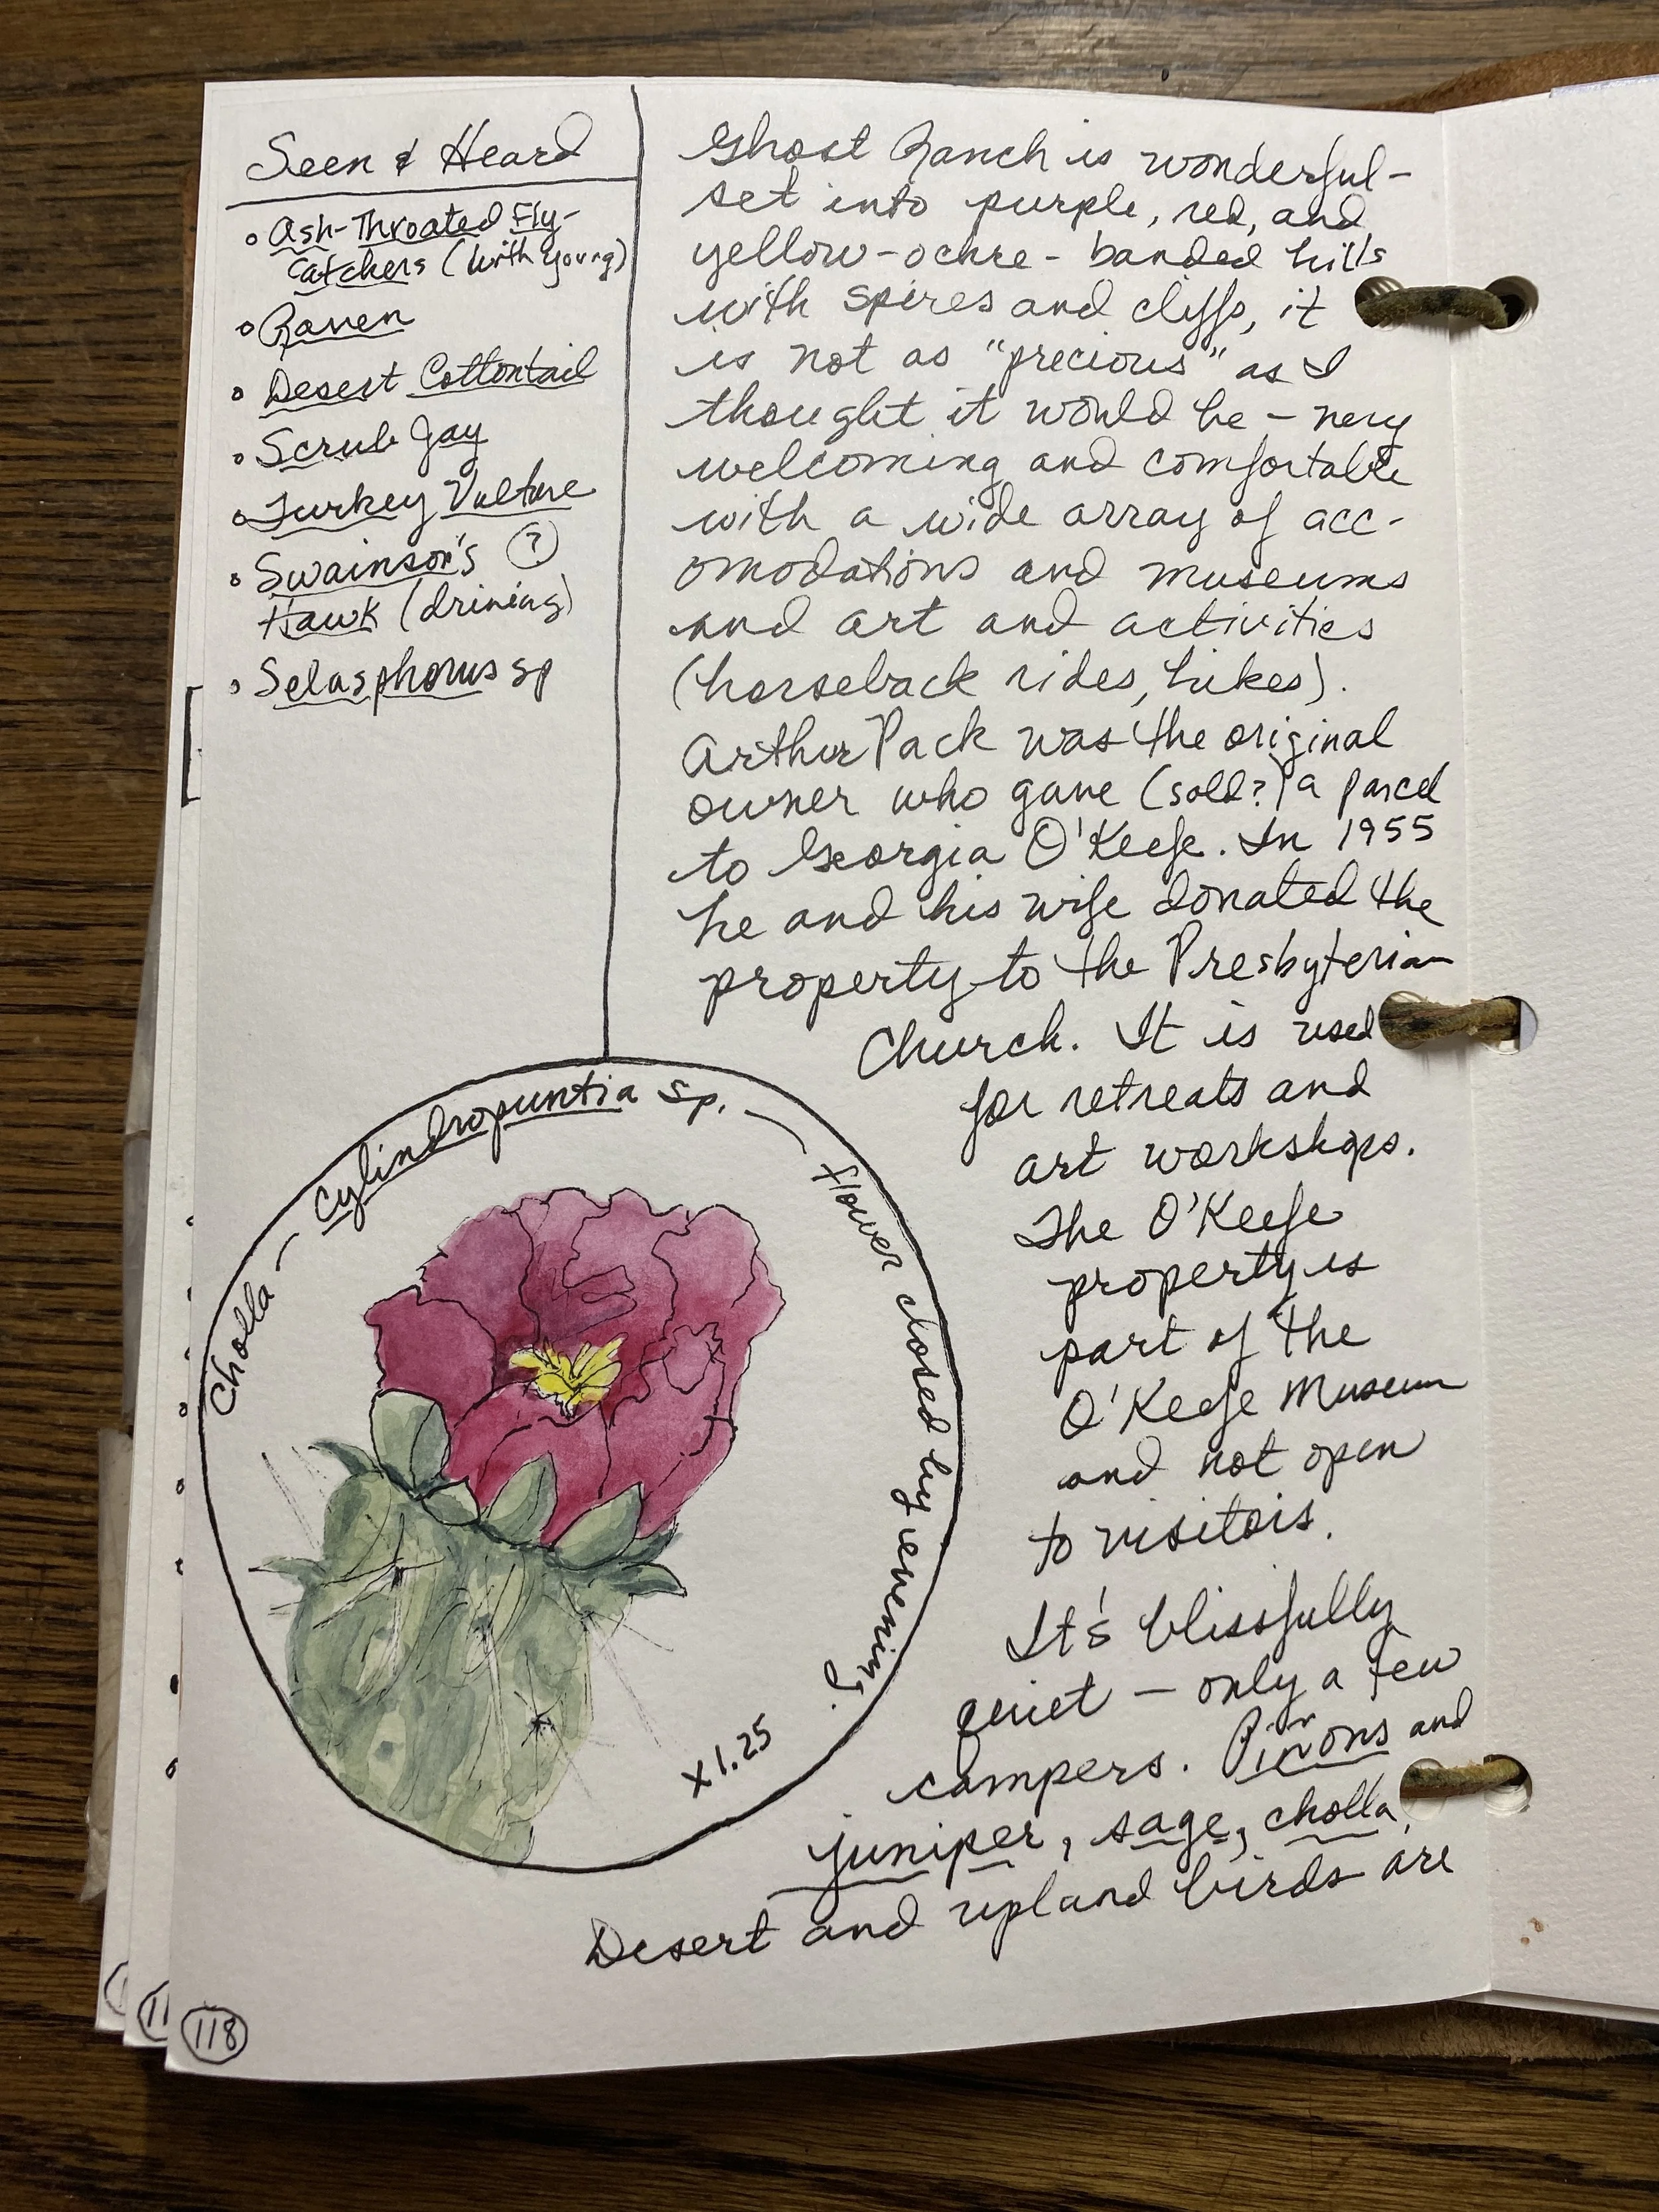 Seen & Heard
◦ Ash-Throated Fly-
Catchers (with young)
◦ Raven
◦ Desert Cottontail
◦ Scrub Jay
◦ Turkey Vulture
◦ Swainson's (?)
Hawk (driving)
◦ Selasphorus sp
Ghost Ranch is wonderful-
set into purple, red, and
yellow-ochre-banded hills
with spires and cliffs, it
is not as "precious" as I
thought it would be - very
welcoming and comfortable
with a wide array of acc-
omodations and museums
and art and activities
(horseback rides, hikes).
Arthur Pack was the original
owner who gave (sold?) a parcel
to Georgia O'Keefe. In 1955
he and his wife donated the
property to the Presbyterian
Church. It is used
for retreats and
art workshops.
The O'Keefe
property is
part of the
O'Keefe Museum
and not open
to visitors.
It's blissfully
quiet - only a few
campers. Piñons and
juniper, sage, cholla.
Desert and upland birds are
Cholla - Cylindropuntia sp. - flower closed by evening.
x 1.25
118